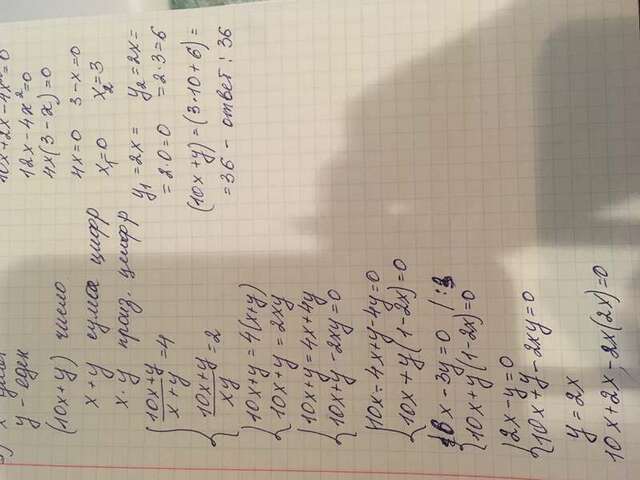 y - един
(10x+y) число
x+y сумма цифр
x·y произ. цифр
10x+y / x+y = 4
10x+y / xy = 2
10x+y = 4(x+y)
10x+y = 2xy
10x+y = 4x+4y
10x+y - 2xy = 0
10x - 4x + y - 4y = 0
10x + y(1-2x) = 0
6x - 3y = 0 / :3
10x + y(1-2x) = 0
2x - y = 0
10x + y - 2xy = 0
y = 2x
10x + 2x - 2x(2x) = 0
10x+2x-4x²=0
12x-4x²=0
4x(3-x)=0
4x=0 3-x=0
x₁=0 x₂=3
y₁=2x= y₂=2x=
=2·0=0 =2·3=6
(10x+y)=(3·10+6)=
=36 - ответ: 36